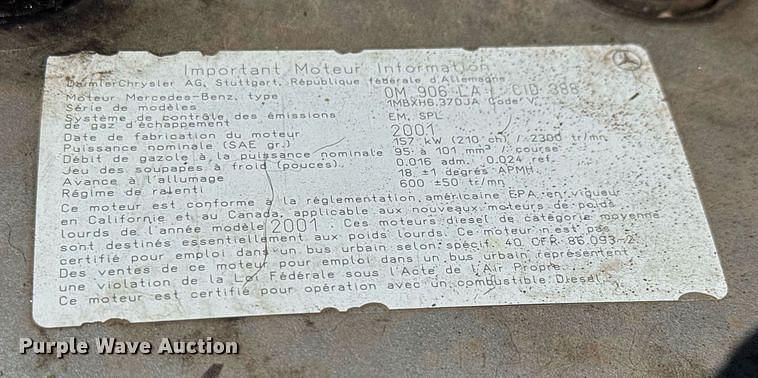 Important Moteur Information
DaimlerChrysler AG, Stuttgart, République fédérale d'Allemagne
Moteur Mercedes-Benz, type OM 906 LA / CID 388
Série de modèles 1MBXH6.370JA Code: V
Système de contrôle des émissions
de gaz d'échappement EM, SPL
Date de fabrication du moteur 2001
Puissance nominale (SAE gr.) 157 kW (210 ch) / 2300 tr/mn
Débit de gazole à la puissance nominale 95 à 101 mm³ / course
Jeu des soupapes à froid (pouces) 0.016 adm. 0.024 ref.
Avance à l'allumage 18 ±1 degrés APMH
Régime de ralenti 600 ±50 tr/mn
Ce moteur est conforme à la réglementation américaine EPA en vigueur
en Californie et au Canada, applicable aux nouveaux moteurs de poids
lourds de l'année modèle 2001. Ces moteurs diesel de catégorie moyenne
sont destinés essentiellement aux poids lourds. Ce moteur n'est pas
certifié pour emploi dans un bus urbain selon spécif. 40 CFR 86.093-2.
Des ventes de ce moteur pour emploi dans un bus urbain représentent
une violation de la Loi Fédérale sous l'Acte de l'Air Propre.
Ce moteur est certifié pour opération avec un combustible: Diesel
Purple Wave Auction